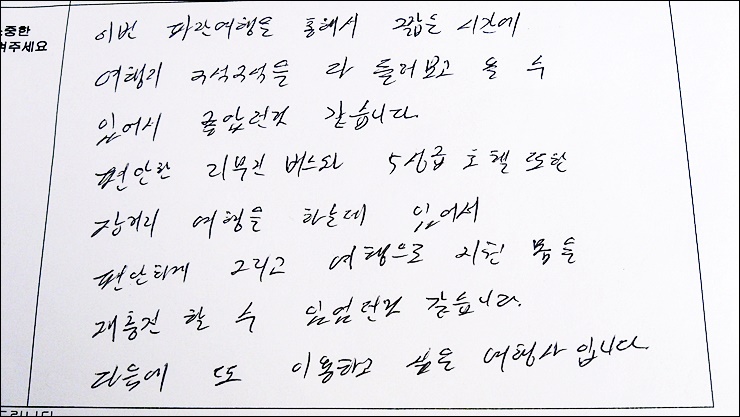 소중한
겨주세요
이번 파란여행을 통해서 그 짧은 시간에
여행지 구석구석을 다 둘러보고 올 수
있어서 좋았던것 같습니다.
편안한 리무진 버스와 5성급 호텔 또한
장거리 여행을 하는데 있어서
편안하게 그리고 여행으로 지친 몸을
재충전 할 수 있었던것 같습니다.
다음에 또 이용하고 싶은 여행사입니다.
드립니다